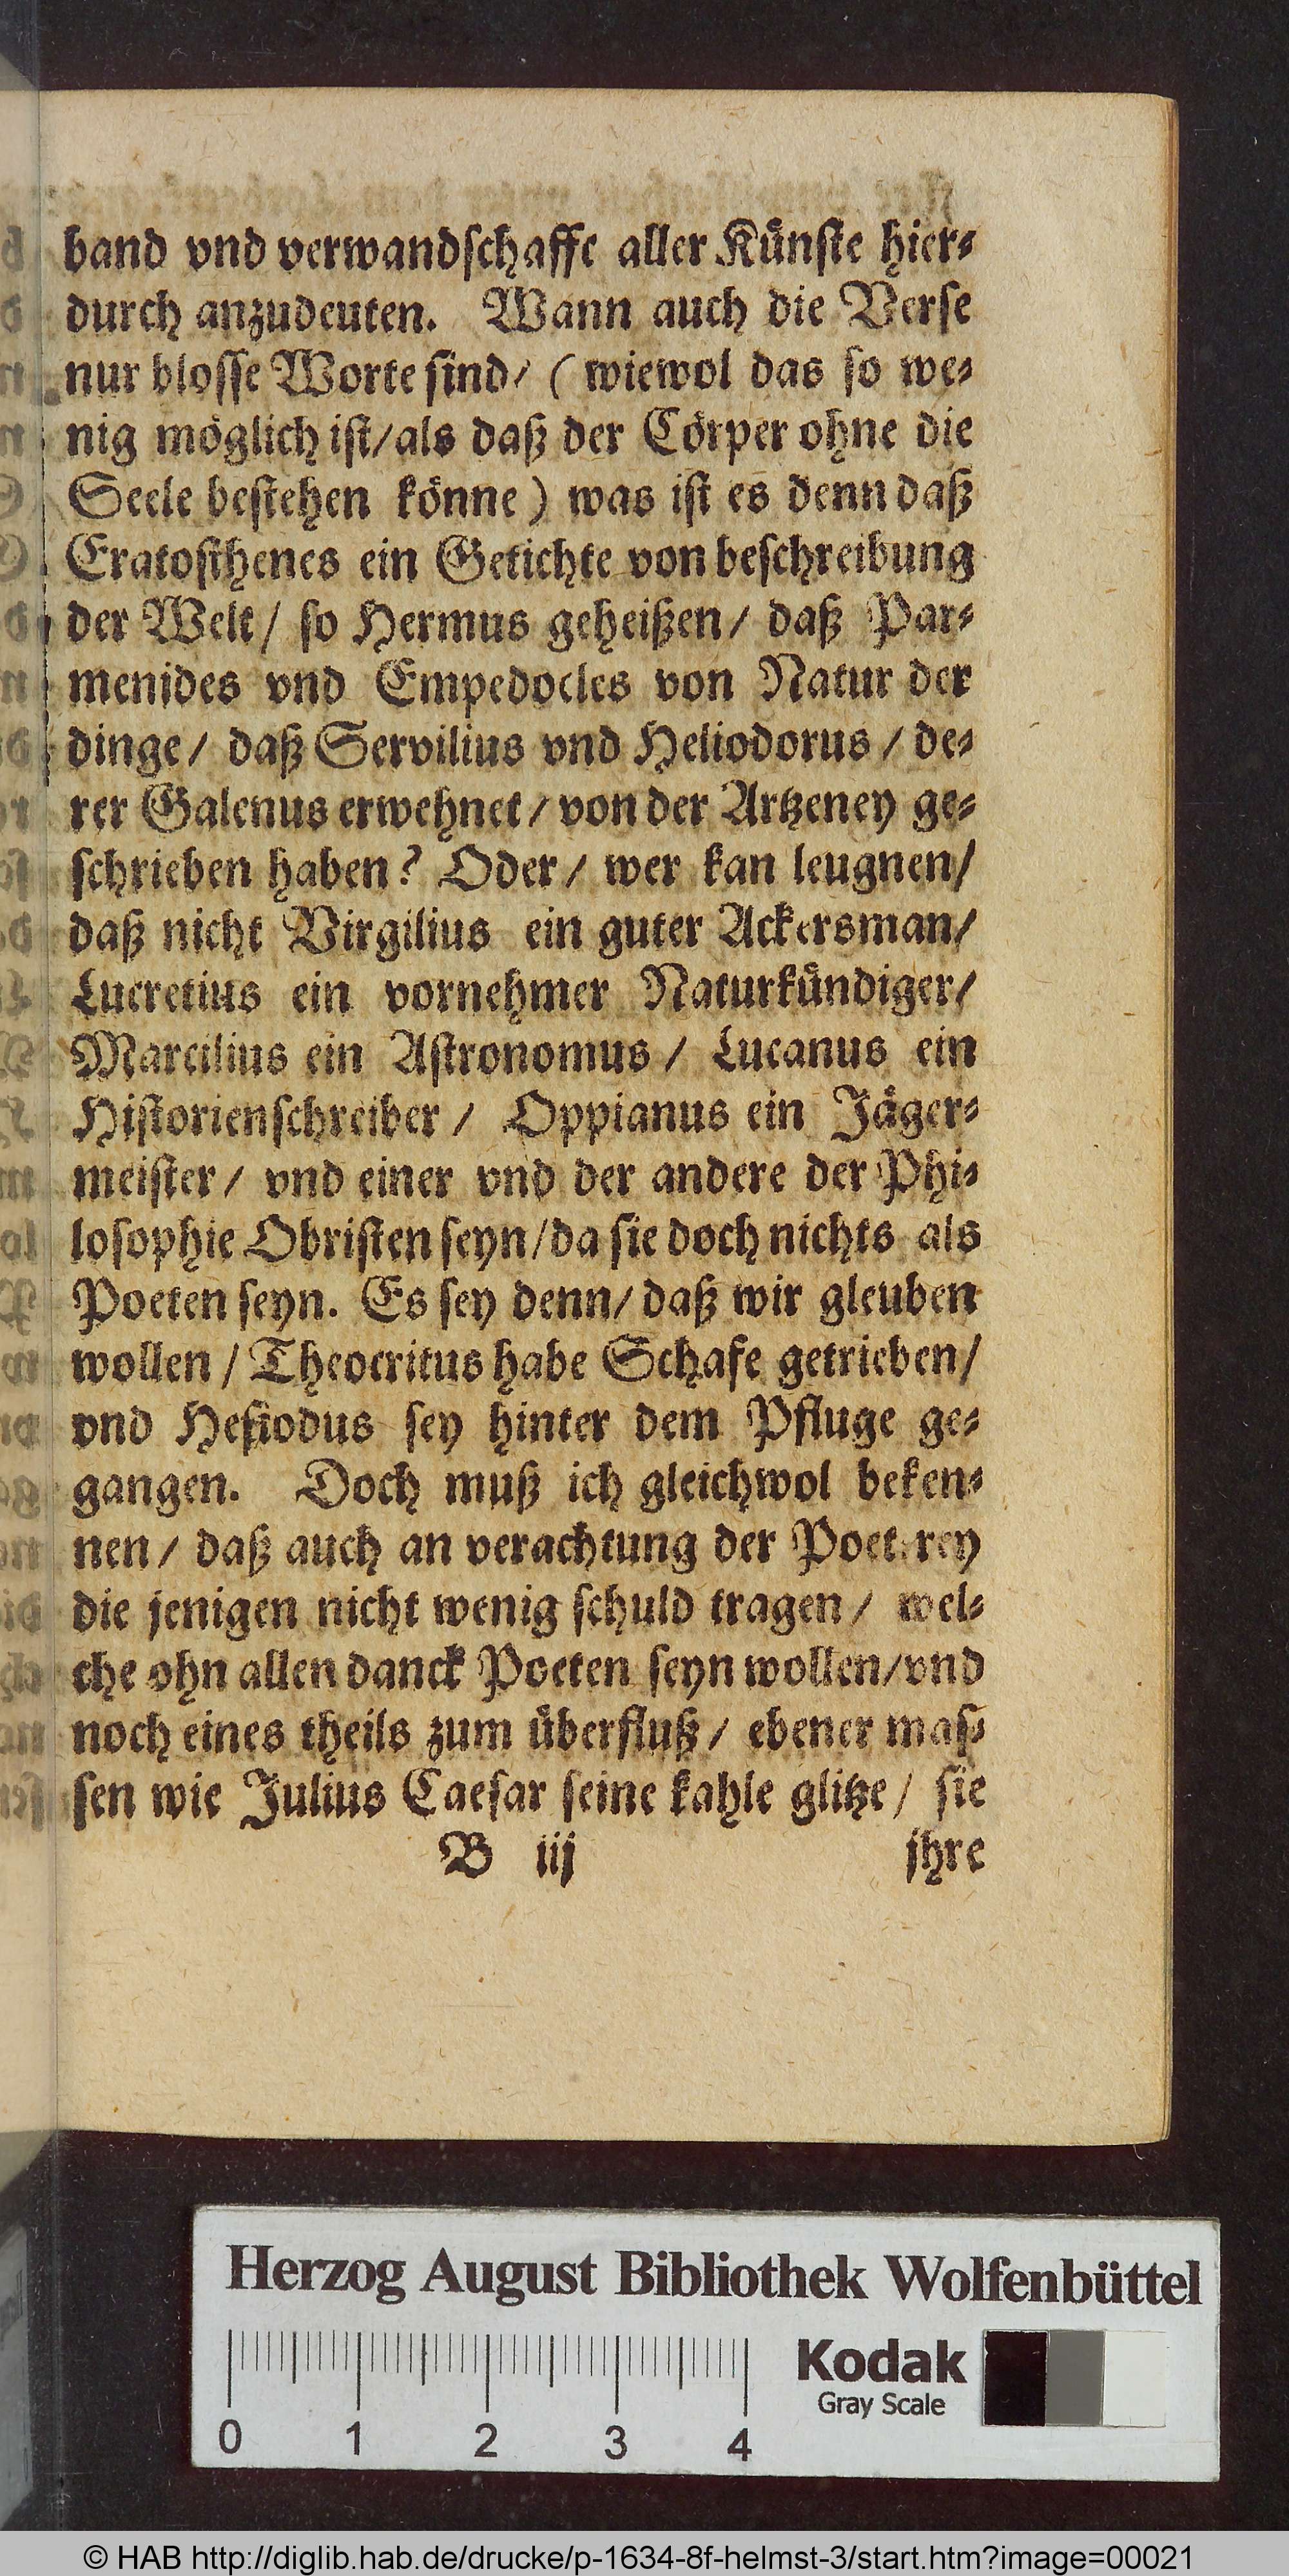 band vnd verwandſchafft aller Kuͤnſte hier⸗
durch anzudeuten. Wann auch die Verſe
nur bloſſe Worte ſind/ (wiewol das ſo we⸗
nig moͤglich iſt/als daß der Coͤrper ohne die
Seele beſtehen koͤnne) was iſt es denn daß
Eratoſthenes ein Getichte von beſchreibung
der Welt/ ſo Hermus geheißen/ daß Par⸗
menides vnd Empedocles von Natur der
dinge/ daß Servilius vnd Heliodorus/ de⸗
rer Galenus erwehnet/ von der Artzeney ge⸗
ſchrieben haben? Oder/ wer kan leugnen/
daß nicht Virgilius ein guter Ackersman/
Lucretius ein vornehmer Naturkuͤndiger/
Marcilius ein Aſtronomus/ Lucanus ein
Hiſtorienſchreiber/ Oppianus ein Jaͤger⸗
meiſter/ vnd einer vnd der andere der Phi⸗
loſophie Obriſten ſeyn/da ſie doch nichts als
Poeten ſeyn. Es ſey denn/ daß wir gleuben
wollen/ Theocritus habe Schafe getrieben/
vnd Heſiodus ſey hinter dem Pfluge ge⸗
gangen. Doch muß ich gleichwol beken⸗
nen/ daß auch an verachtung der Poeterey
die jenigen nicht wenig ſchuld tragen/ wel⸗
che ohn allen danck Poeten ſeyn wollen/vnd
noch eines theils zum uͤberfluß/ ebener maſ⸗
ſen wie Julius Caeſar ſeine kahle glitze/ ſie
B iij jhre
Herzog August Bibliothek Wolfenbüttel
Kodak
Gray Scale
0 1 2 3 4
© HAB http://diglib.hab.de/drucke/p-1634-8f-helmst-3/start.htm?image=00021